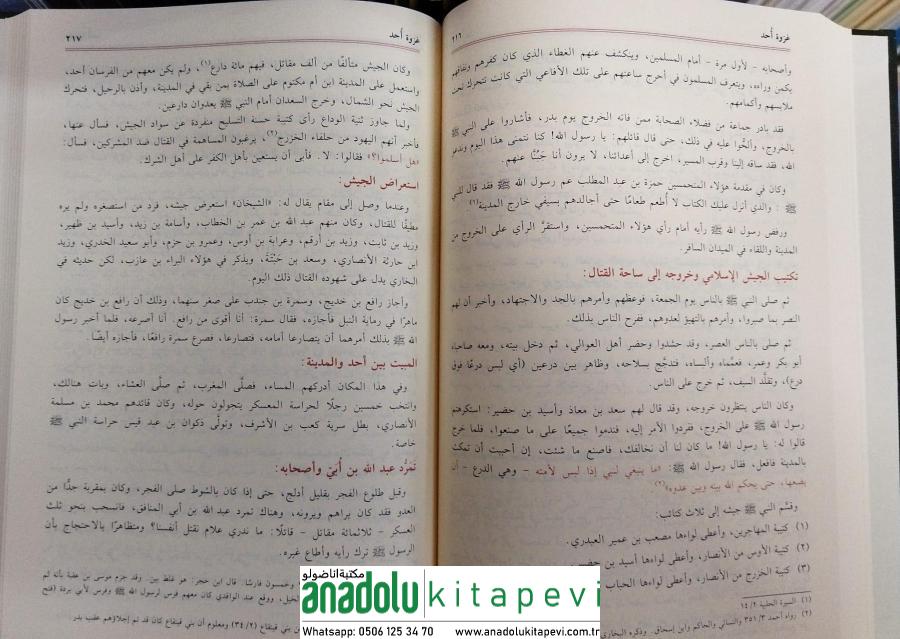 غزوة أحد
٢١٦
وأصحابه - لأول مرة - أمام المسلمين، وينكشف عنهم الغطاء الذي كان كفرهم ونفاقهم
يكمن وراءه، ويتعرف المسلمون في أحرج ساعتهم على تلك الأفاعي التي كانت تتحرك تحت
ملابسهم وأكمامهم.
فقد بادر جماعة من فضلاء الصحابة ممن فاته الخروج يوم بدر، فأشاروا على النبي ﷺ
بالخروج، وألحُّوا عليه في ذلك، حتى قال قائلهم: يا رسول الله! كنا نتمنى هذا اليوم وندعو
الله، فقد ساقه إلينا وقرب المسير، اخرج إلى أعدائنا، لا يرون أنا جَبُنَّا عنهم.
وكان في مقدمة هؤلاء المتحمسين حمزة بن عبد المطلب عم رسول الله ﷺ فقد قال للنبي
ﷺ : والذي أنزل عليك الكتاب لا أطعم طعامًا حتى أجالدهم بسيفي خارج المدينة(١)
ورفض رسول الله ﷺ رأيه أمام رأي هؤلاء المتحمسين، واستقرَّ الرأي على الخروج من
المدينة واللقاء في الميدان السافر.
تكتيب الجيش الإسلامي وخروجه إلى ساحة القتال:
ثم صلى النبي ﷺ بالناس يوم الجمعة، فوعظهم وأمرهم بالجد والاجتهاد، وأخبر أن لهم
النصر بما صبروا، وأمرهم بالتهيؤ لعدوهم، ففرح الناس بذلك.
ثم صلى بالناس العصر، وقد حشدوا وحضر أهل العوالي، ثم دخل بيته، ومعه صاحباه
أبو بكر وعمر، فعمَّماه وألبساه، فتدجَّج بسلاحه، وظاهر بين درعين (أي لبس درعًا فوق
درع)، وتقلَّد السيف، ثم خرج على الناس.
وكان الناس ينتظرون خروجه، وقد قال لهم سعد بن معاذ وأسيد بن حضير: استكرهتم
رسول الله ﷺ على الخروج، فردوا الأمر إليه، فندموا جميعًا على ما صنعوا، فلما خرج
قالوا له: يا رسول الله! ما كان لنا أن نخالفك، فاصنع ما شئت، إن أحببت أن تمكث
بالمدينة فافعل، فقال رسول الله ﷺ: «ما ينبغي لنبي إذا لبس لأمته - وهي الدرع - أن
يضعها، حتى يحكم الله بينه وبين عدوه»(٢)
وقسَّم النبي ﷺ جيشه إلى ثلاث كتائب:
(١) كتيبة المهاجرين، وأعطى لواءها مصعب بن عمير العبدري.
(٢) كتيبة الأوس من الأنصار، وأعطى لواءها أسيد بن حضير
(٣) كتيبة الخزرج من الأنصار، وأعطى لواءها الحباب
(١) السيرة الحلبية ١٤/٢
(٢) رواه أحمد ٣٥١/٣ والنسائي والحاكم وابن إسحاق. وذكره البخاري
غزوة أحد
٢١٧
وكان الجيش متألفًا من ألف مقاتل، فيهم مائة دارع(١)، ولم يكن معهم من الفرسان أحد،
واستعمل على المدينة ابن أم مكتوم على الصلاة بمن بقي في المدينة، وأذن بالرحيل، فتحرك
الجيش نحو الشمال، وخرج السعدان أمام النبي ﷺ يعدوان دارعين.
ولما جاوز ثنية الوداع رأى كتيبة حسنة التسليح منفردة عن سواد الجيش، فسأل عنها،
فأخبر أنهم اليهود من حلفاء الخزرج(٢)، يرغبون المساهمة في القتال ضد المشركين، فسأل:
«هل أسلموا؟» فقالوا: لا. فأبى أن يستعين بأهل الكفر على أهل الشرك.
استعراض الجيش:
وعندما وصل إلى مقام يقال له: «الشيخان» استعرض جيشه، فرد من استصغره ولم يره
مطيقًا للقتال، وكان منهم عبد الله بن عمر بن الخطاب، وأسامة بن زيد، وأسيد بن ظهير،
وزيد بن ثابت، وزيد بن أرقم، وعرابة بن أوس، وعمرو بن حزم، وأبو سعيد الخدري، وزيد
ابن حارثة الأنصاري، وسعد بن حَبْتَة، ويذكر في هؤلاء البراء بن عازب، لكن حديثه في
البخاري يدل على شهوده القتال ذلك اليوم.
وأجاز رافع بن خديج، وسمرة بن جندب على صغر سنهما، وذلك أن رافع بن خديج كان
ماهرًا في رماية النبل فأجازه، فقال سمرة: أنا أقوى من رافع. أنا أصرعه، فلما أخبر رسول
الله ﷺ بذلك أمرهما أن يتصارعا أمامه، فتصارعا، فصرع سمرة رافعًا، فأجازه أيضًا.
المبيت بين أحد والمدينة:
وفي هذا المكان أدركهم المساء، فصلَّى المغرب، ثم صلَّى العشاء، وبات هنالك،
وانتخب خمسين رجلًا لحراسة المعسكر يتجولون حوله، وكان قائدهم محمد بن مسلمة
الأنصاري، بطل سرية كعب بن الأشرف، وتولَّى ذكوان بن عبد قيس حراسة النبي ﷺ
خاصة.
تَمَرُّد عبد الله بن أُبَيّ وأصحابه:
وقبل طلوع الفجر بقليل أدلج، حتى إذا كان بالشوط صلى الفجر، وكان بمقربة جدًّا من
العدو فقد كان يراهم ويرونه، وهناك تمرد عبد الله بن أبي المنافق، فانسحب بنحو ثلث
العسكر - ثلاثمائة مقاتل - قائلًا: ما ندري علام نقتل أنفسنا؟ ومتظاهرًا بالاحتجاج بأن
الرسول ﷺ ترك رأيه وأطاع غيره.
وخمسون فارسًا. قال ابن حجر: هو غلط بين. وقد جزم موسى بن عقبة بأنه لم
الخيل، ووقع عند الواقدي كان معهم فرس لرسول الله ﷺ وفرس لأبي بردة (فتح
بني قينقاع (٣٤/٢) ومعلوم أن بني قينقاع كان قد تم إجلاؤهم عقب بدر
مكتبة اناضولو
anadolu kitapevi
Whatsapp: 0506 125 34 70 www.anadolukitapevi.com.tr